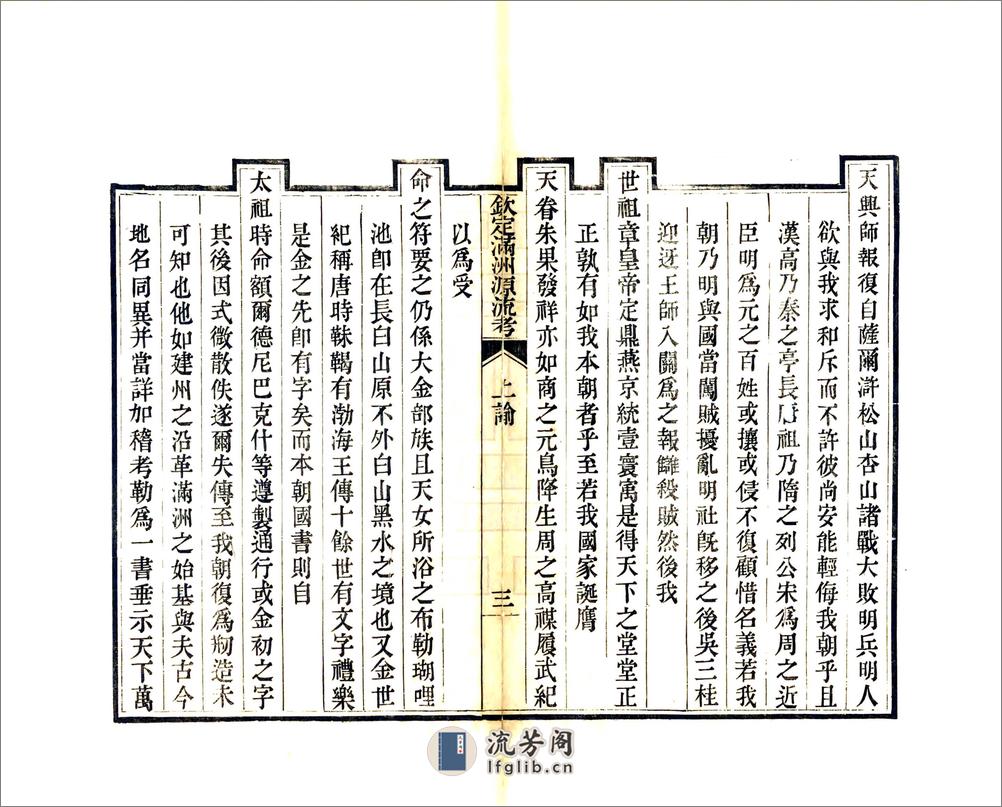 天興師報復自薩爾滸松山杏山諸戰大敗明兵明人
欲與我求和斥而不許彼尚安能輕侮我朝乎且
漢高乃秦之亭長唐祖乃隋之列公宋爲周之近
臣明爲元之百姓或攘或侵不復顧惜名義若我
朝乃明與國當闖賊擾亂明社旣移之後吳三桂
迎迓王師入關爲之報讎殺賊然後我
世祖章皇帝定鼎燕京統壹寰寓是得天下之堂堂正
正孰有如我本朝者乎至若我國家誕膺
天眷朱果發祥亦如商之元鳥降生周之高禖履武紀
欽定滿洲源流考
上諭
三
以爲受
命之符要之仍係大金部族且天女所浴之布勒瑚哩
池卽在長白山原不外白山黑水之境也又金世
紀稱唐時靺鞨有渤海王傳十餘世有文字禮樂
是金之先卽有字矣而本朝國書則自
太祖時命額爾德尼巴克什等遵製通行或金初之字
其後因式微散佚遂爾失傳至我朝復爲剏造未
可知也他如建州之沿革滿洲之始基與夫古今
地名同異并當詳加稽考勒爲一書垂示天下萬
流芳阁
lfglib.cn